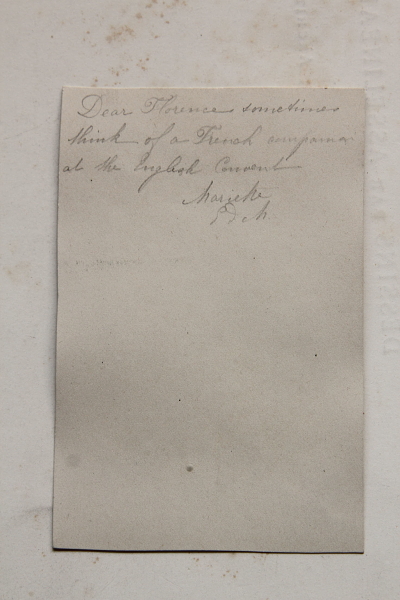 Dear Florence sometimes
think of a French companion
at the English Convent